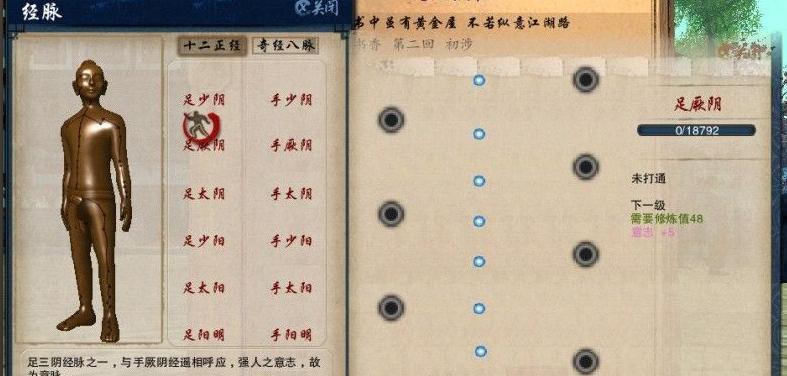 经脉
关闭
十二正经
奇经八脉
足少阴
手少阴
足厥阴
手厥阴
足太阴
手太阴
足少阳
手少阳
足太阳
手太阳
足阳明
手阳明
足三阴经脉之一，与手厥阴经遥相呼应，强人之意志，故
为意脉
书中虽有黄金屋 不若纵意江湖路
书香 第二回 初涉
足厥阴
0/18792
未打通
下一级
需要修炼值48
意志 +5